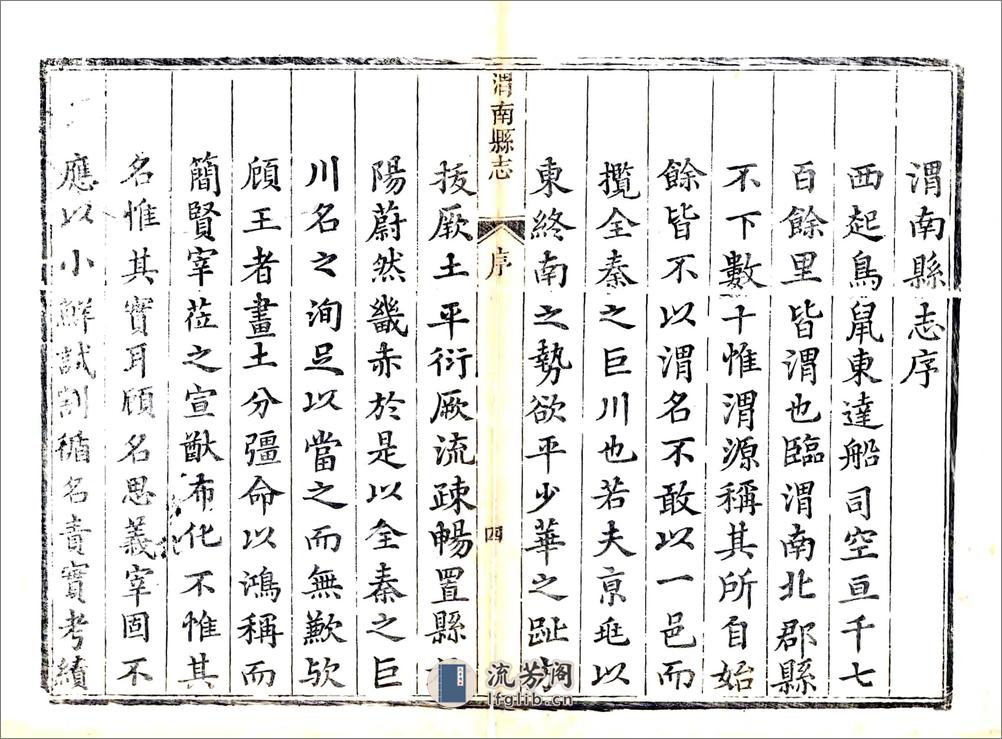 渭南縣志序
西起鳥鼠東達船司空亘千七
百餘里皆渭也臨渭南北郡縣
不下數十惟渭源稱其所自始
餘皆不以渭名不敢以一邑而
攬全秦之巨川也若夫亰垤以
東終南之勢欲平少華之趾
渭南縣志
序
四
拔厥土平衍厥流疎暢置縣
陽蔚然畿赤於是以全秦之巨
川名之洵足以當之而無歉欤
顧王者畫土分彊命以鴻稱而
簡賢宰莅之宣猷布化不惟其
名惟其實耳顧名思義宰固不
應以小鮮試割循名責實考績
流芳阁
lfglib.cn